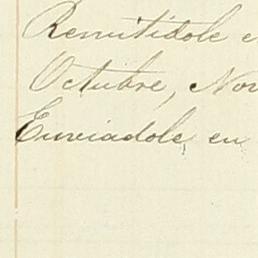 Remitidole e
Octubre, Nov
Enviadole, en